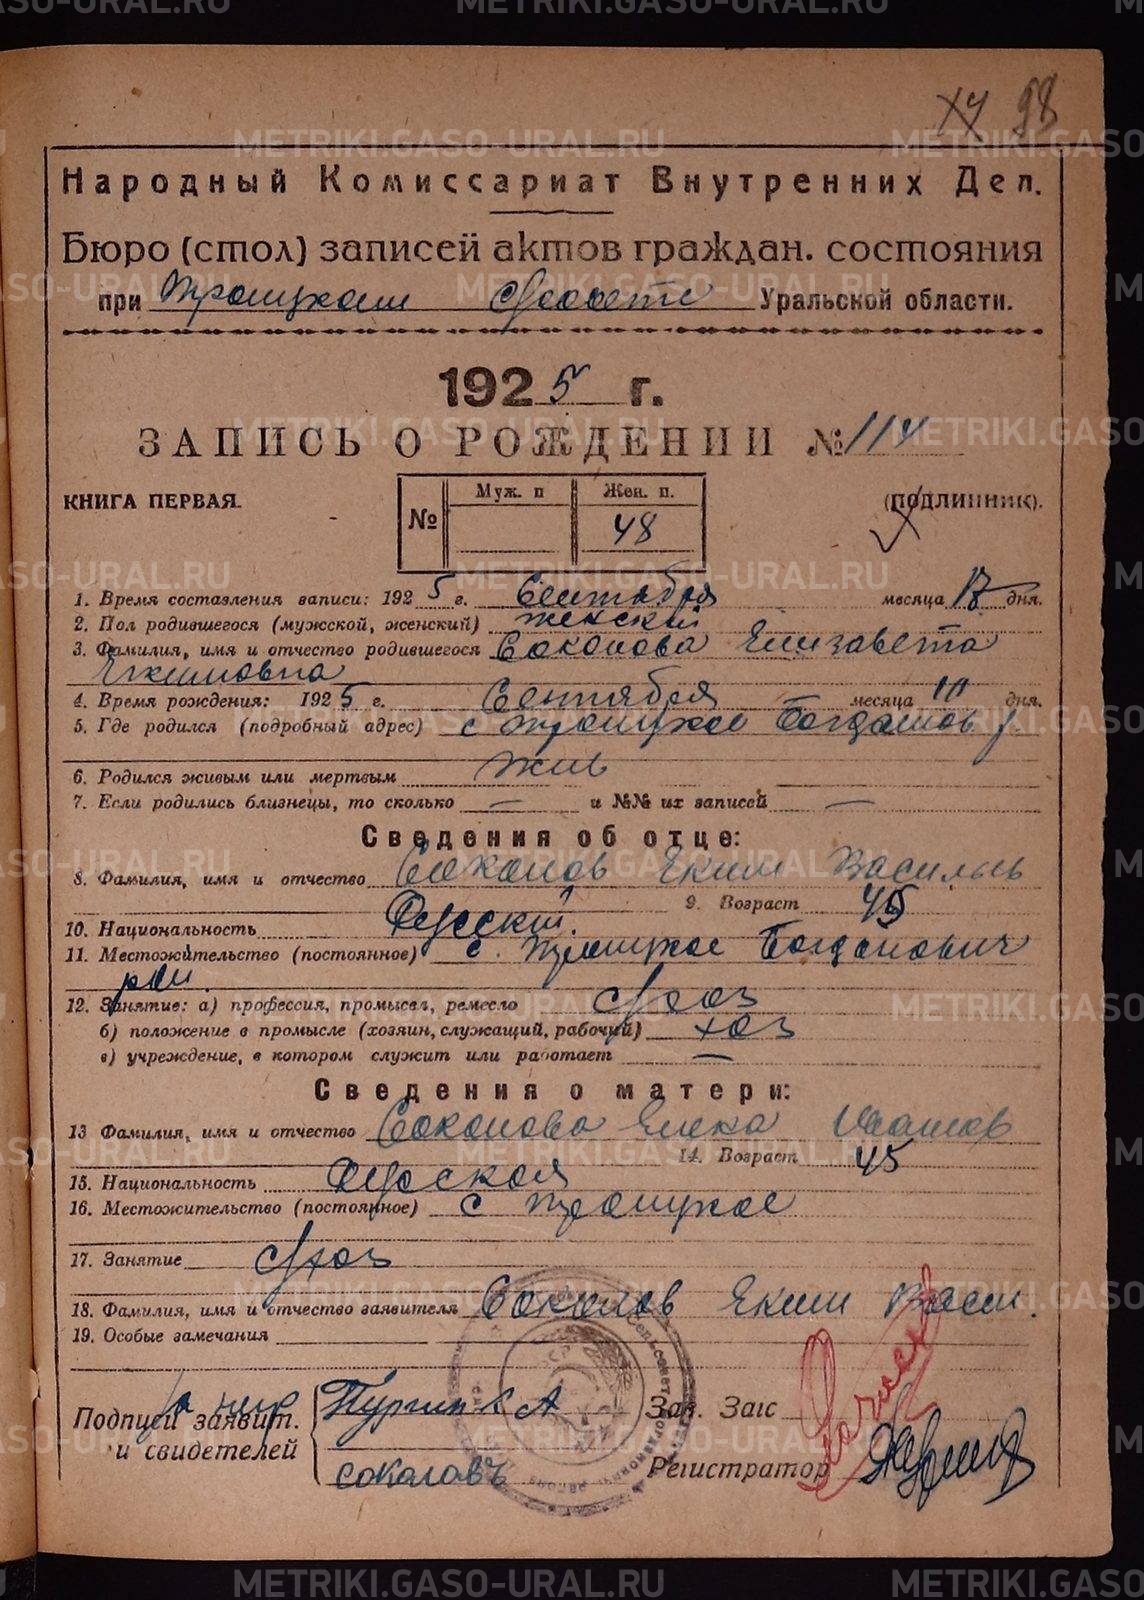 98
Народный Комиссариат Внутренних Дел.
Бюро (стол) записей актов граждан. состояния
при Троицком с/совете Уральской области.
1925 г.
ЗАПИСЬ О РОЖДЕНИИ № 114
КНИГА ПЕРВАЯ. № Муж. п Жен. п. 48 (подлинник).
1. Время составления записи: 1925 г. Сентября месяца 17 дня.
2. Пол родившегося (мужской, женский) женский
3. Фамилия, имя и отчество родившегося Соколова Елизавета
Екимовна
4. Время рождения: 1925 г. Сентября месяца 10 дня.
5. Где родился (подробный адрес) с Троицкое Богданов р.
6. Родился живым или мертвым жив
7. Если родились близнецы, то сколько — и №№ их записей —
Сведения об отце:
8. Фамилия, имя и отчество Соколов Еким Василив
9. Возраст 45
10. Национальность Русский.
11. Местожительство (постоянное) с. Троицкое Богданович
рай.
12. Занятие: а) профессия, промысел, ремесло с/хоз
б) положение в промысле (хозяин, служащий, рабочий) хоз
в) учреждение, в котором служит или работает —
Сведения о матери:
13 Фамилия, имя и отчество Соколова Елена
14. Возраст 45
15. Национальность Русская
16. Местожительство (постоянное) с Троицкое
17. Занятие с/хоз
18. Фамилия, имя и отчество заявителя Соколов Еким Васил.
19. Особые замечания
Подписи заявит.
и свидетелей
Соколовъ
Зав. Загс
Регистратор
METRIKI.GASO-URAL.RU